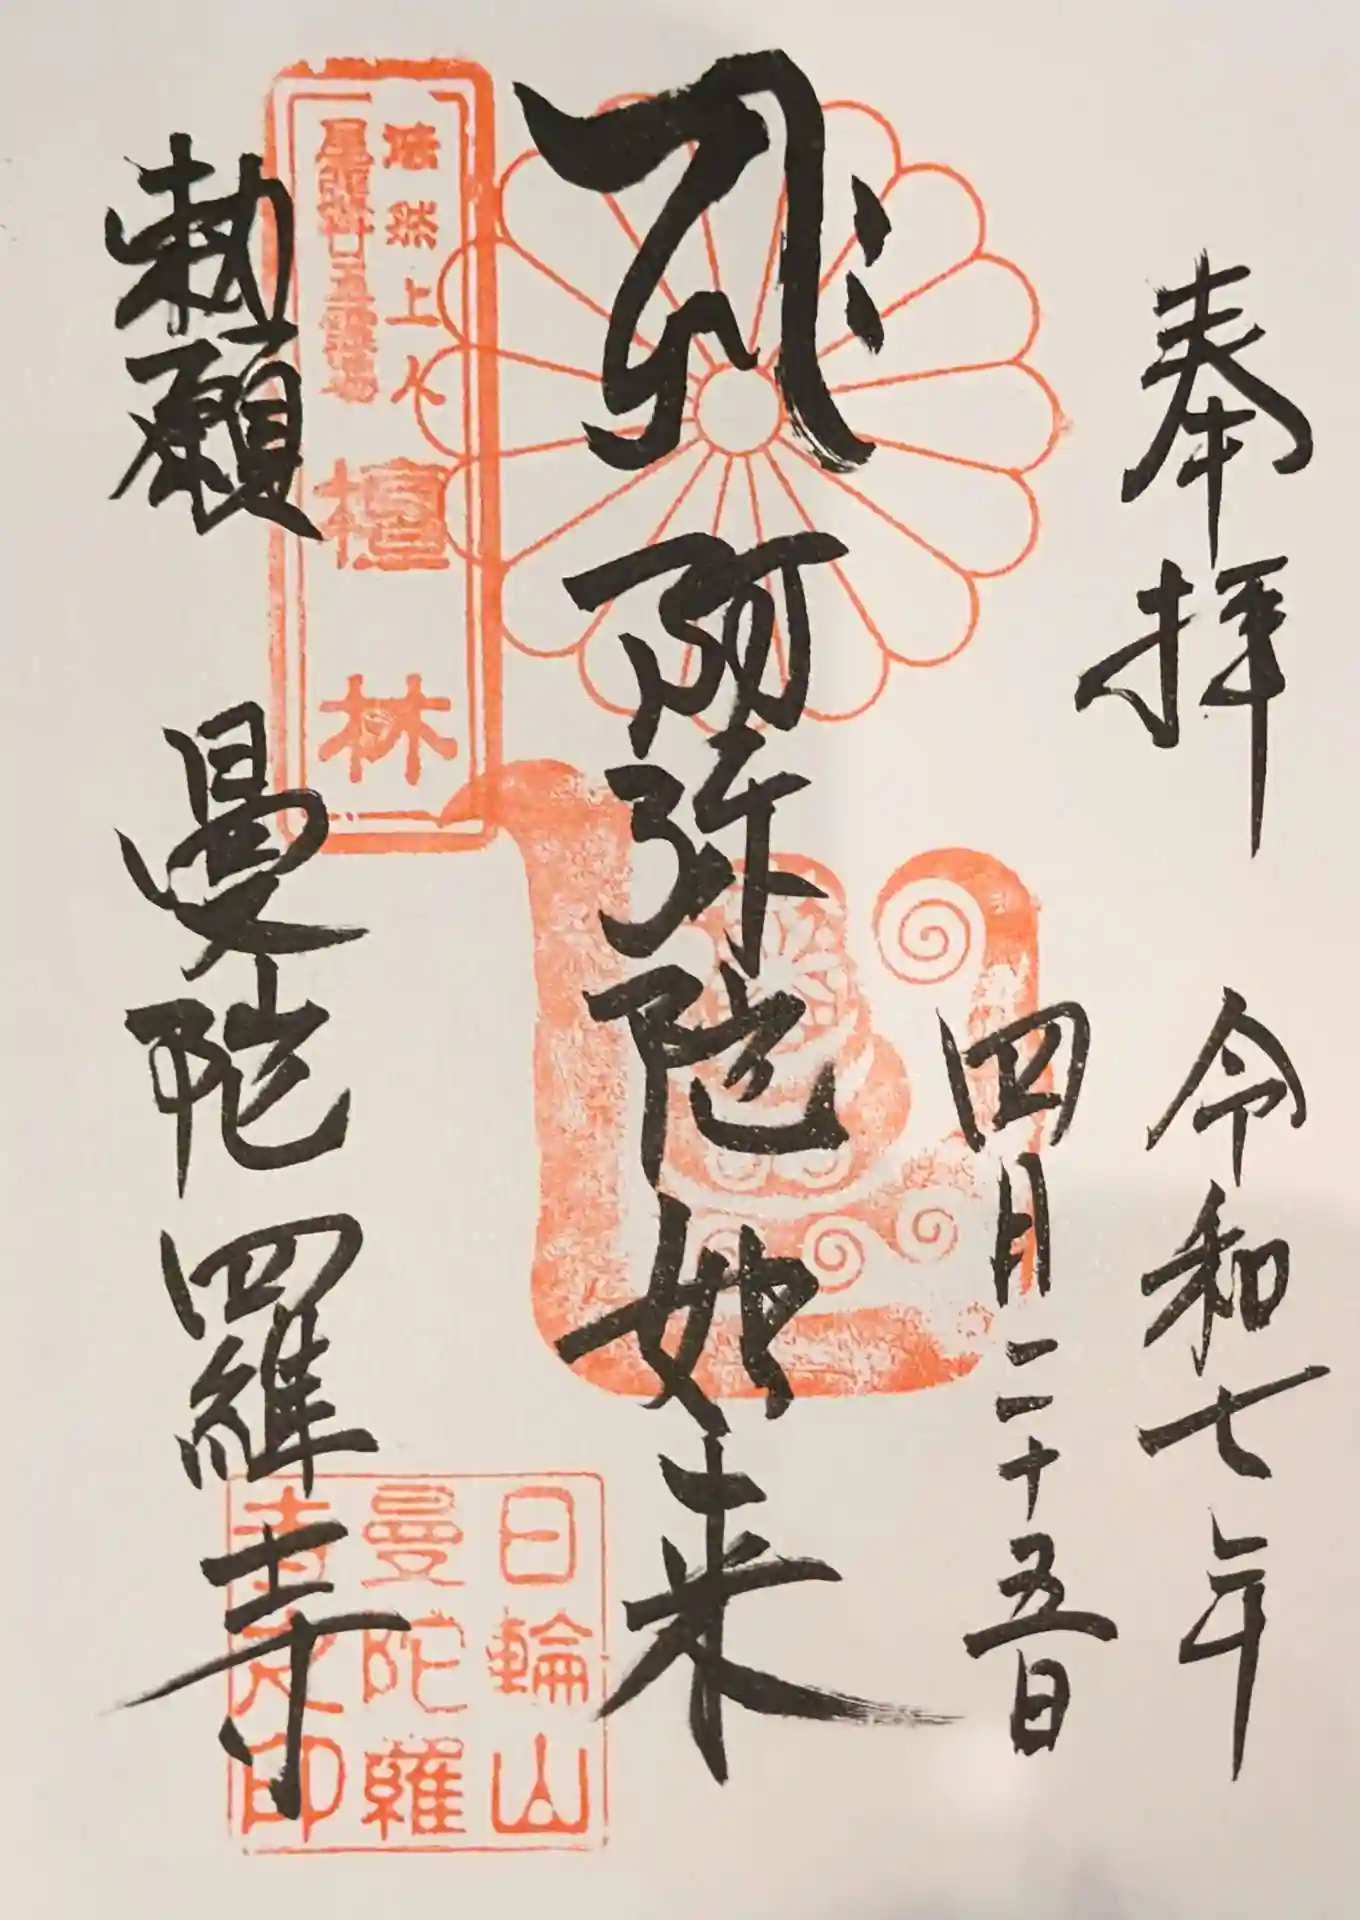 奉拝
令和七年
四月二十五日
𑖮𑖿𑖨𑖱𑖾
阿弥陀如来
勅願 曼陀羅寺
法然上人
五霊場
檀林
日輪山
曼陀羅
寺之印